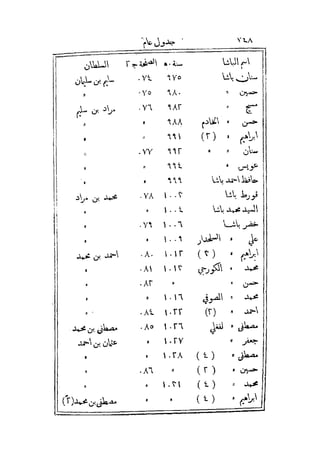 ٧٤٨ جدول عام
اسم الباشا سنة ٠هـ الصفحة ج ٢ السلطان
سنان باشا ٩٧٥ ٠٧٤ سليم بن سليمان
حسين » ٩٨٠ ٠٧٥ »
مسيح » ٩٨٢ ٠٧٦ مراد بن سليم
حسن » الخادم ٩٨٨ » »
ابراهيم » (٢) ٩٩١ » »
سنان » » ٩٩٢ ٠٧٧ »
عويس » ٩٩٤ » »
حافظ احمد باشا ٩٩٩ » »
قورط باشا ١٠٠٢ ٠٧٨ محمد بن مراد
السيد محمد باشا ١٠٠٤ » »
خضر باشا ١٠٠٦ ٠٧٩ »
علي » السلحدار ١٠٠٩ » »
ابراهيم » (٣) ١٠١٢ ٠٨٠ احمد بن محمد
محمد » الكورجي ١٠١٢ ٠٨١ »
حسن » » ٠٨٢ »
محمد » الصوفي ١٠١٦ » »
احمد » (٢) ١٠٢٢ ٠٨٤ »
مصطفى » لفغلي ١٠٢٦ ٠٨٥ مصطفى بن محمد
جعفر » ١٠٢٧ » عثمان بن احمد
مصطفى » (٤) ١٠٢٨ » »
حسين » (٢) » ٠٨٦ »
محمد » (٤) ١٠٣١ » »
ابراهيم » (٤) » » مصطفى بن محمد (٢)